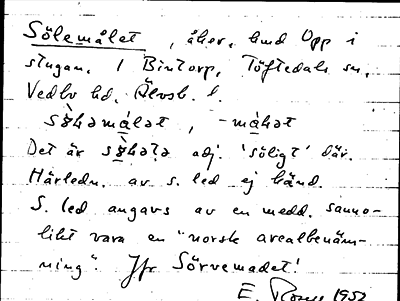 Sölemålet, åker, hmd Opp i
stugan, 1 Bintorp, Töftedals sn,
Vedbo hd, Älvsb. l.
sö̀hǝmàlǝt, -màhǝt
Det är söhǝtǝ adj. 'söligt' där.
Härledn. av s. led ej känd.
S. led angavs av en medd. sanno-
likt vara en "norsk arealbenäm-
ning". Jfr Sörvemadet!
E. 1952